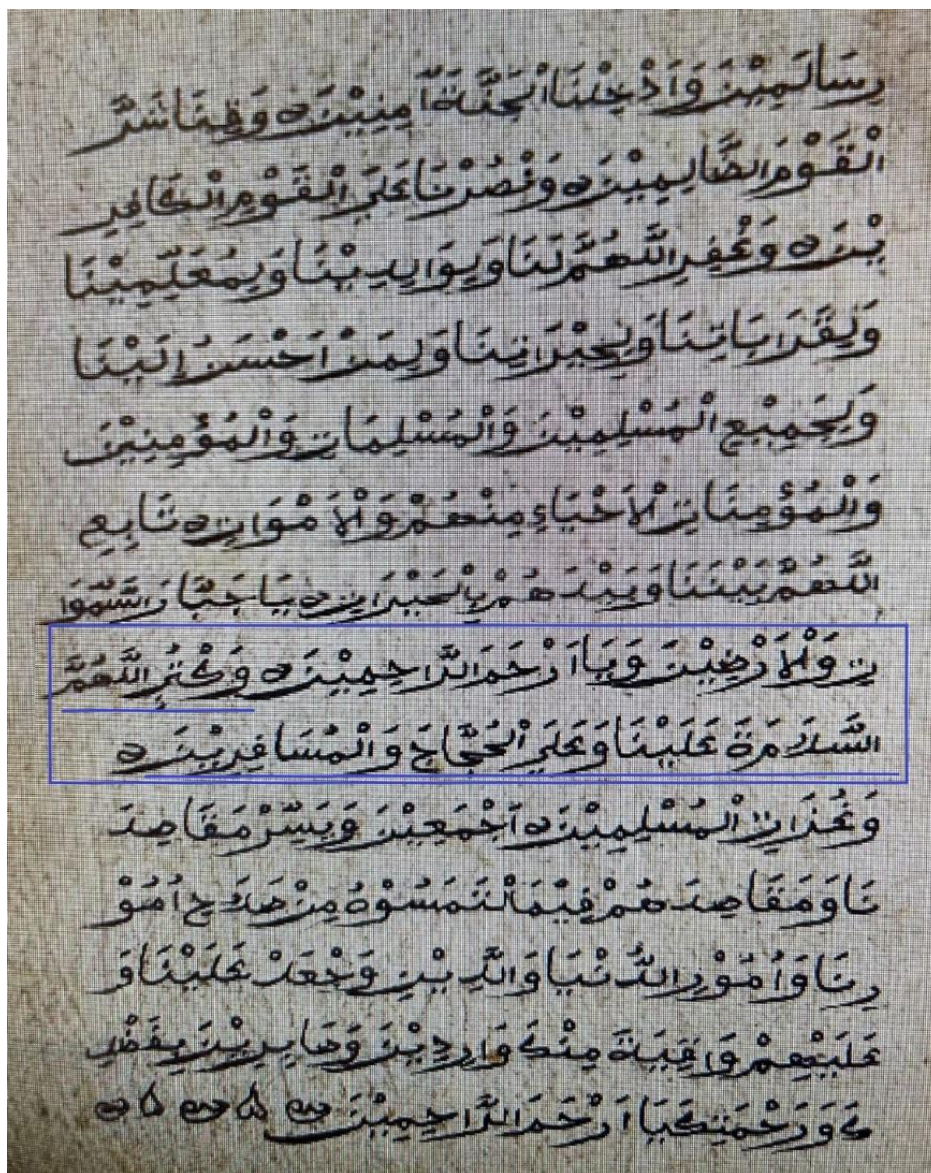 رِسَالَمِيْنَ وَاَدْخِلْنَا الْجَنَّةَ آمِنِيْنَ ه وَقِنَا شَرَّ
الْقَوْمِ الظَّالِمِيْنَ ه وَنْصُرْنَا عَلَى الْقَوْمِ الْكَافِرِ
يْنَ ه وَغْفِرِ اللَّهُمَّ لَنَا وَلِوَالِدِيْنَا وَلِمُعَلِّمِيْنَا
وَلِقَرَابَاتِنَا وَلِجِيْرَانِنَا وَلِمَنْ اَحْسَنَ اِلَيْنَا
وَلِجَمِيْعِ الْمُسْلِمِيْنَ وَالْمُسْلِمَاتِ وَالْمُؤْمِنِيْنَ
وَالْمُؤْمِنَاتِ لْاَحْيَاءِ مِنْهُمْ وَلْاَمْوَاتِ ه تَابِعِ
اللَّهُمَّ بَيْنَنَا وَبَيْنَهُمْ بِالْخَيْرَاتِ ه يَا جَبَّارَ السَّمٰوَا
تِ وَلْاَرْضِيْنَ وَيَا اَرْحَمَ الرَّاحِمِيْنَ ه وَكْتُبِ اللَّهُمَّ
السَّلَامَةَ عَلَيْنَا وَعَلَى الْحُجَّاجِ وَالْمُسَافِرِيْنَ ه
وَغُزَاتِ الْمُسْلِمِيْنَ ه اَجْمَعِيْنَ وَيَسِّرْ مَقَاصِدَ
نَا وَمَقَاصِدَهُمْ فِيْمَا لْتَمَسُوْهُ مِنْ صَلَاحِ اُمُوْ
رِنَا وَاُمُوْرِ الدُّنْيَا وَالدِّيْنِ وَجْعَلْ عَلَيْنَا وَ
عَلَيْهِمْ وَاقِيَةَ مِنْكَ وَارِدِيْنَ وَصَابِرِيْنَ بِفَضْلِ
كَ وَرَحْمَتِكَ يَا اَرْحَمَ الرَّاحِمِيْنَ